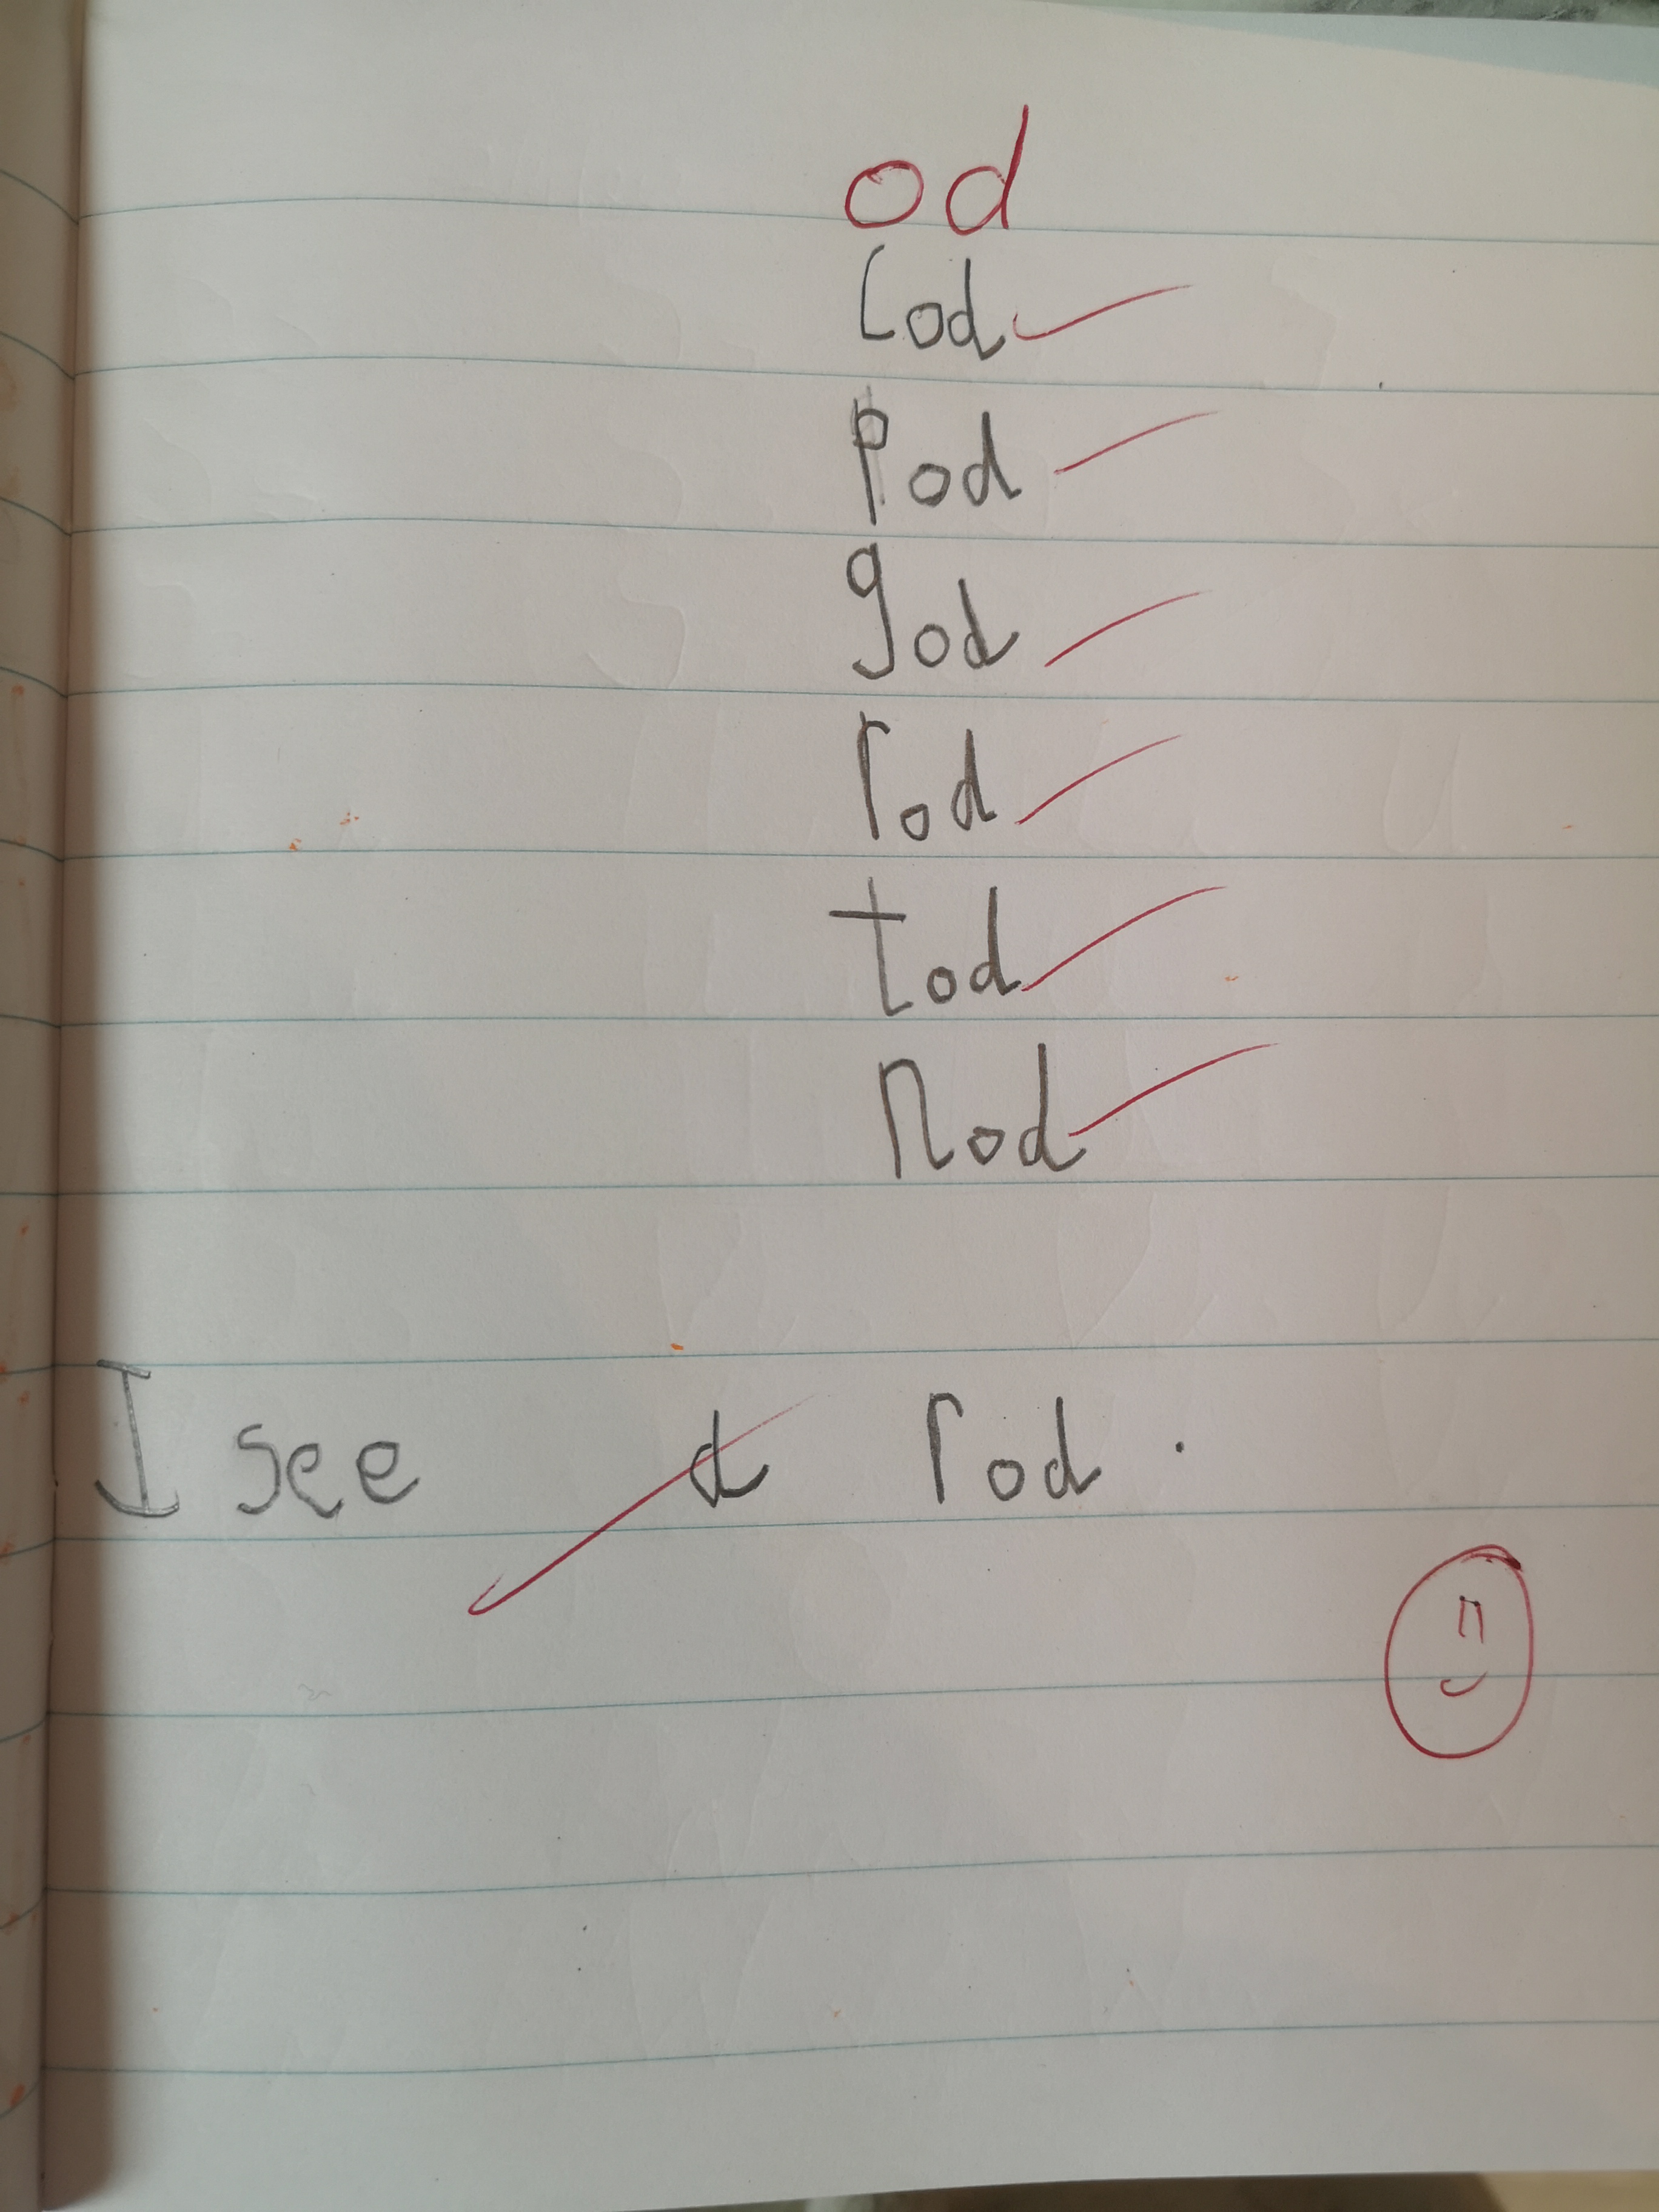 od
cod
pod
god
rod
tod
nod
I see a rod.